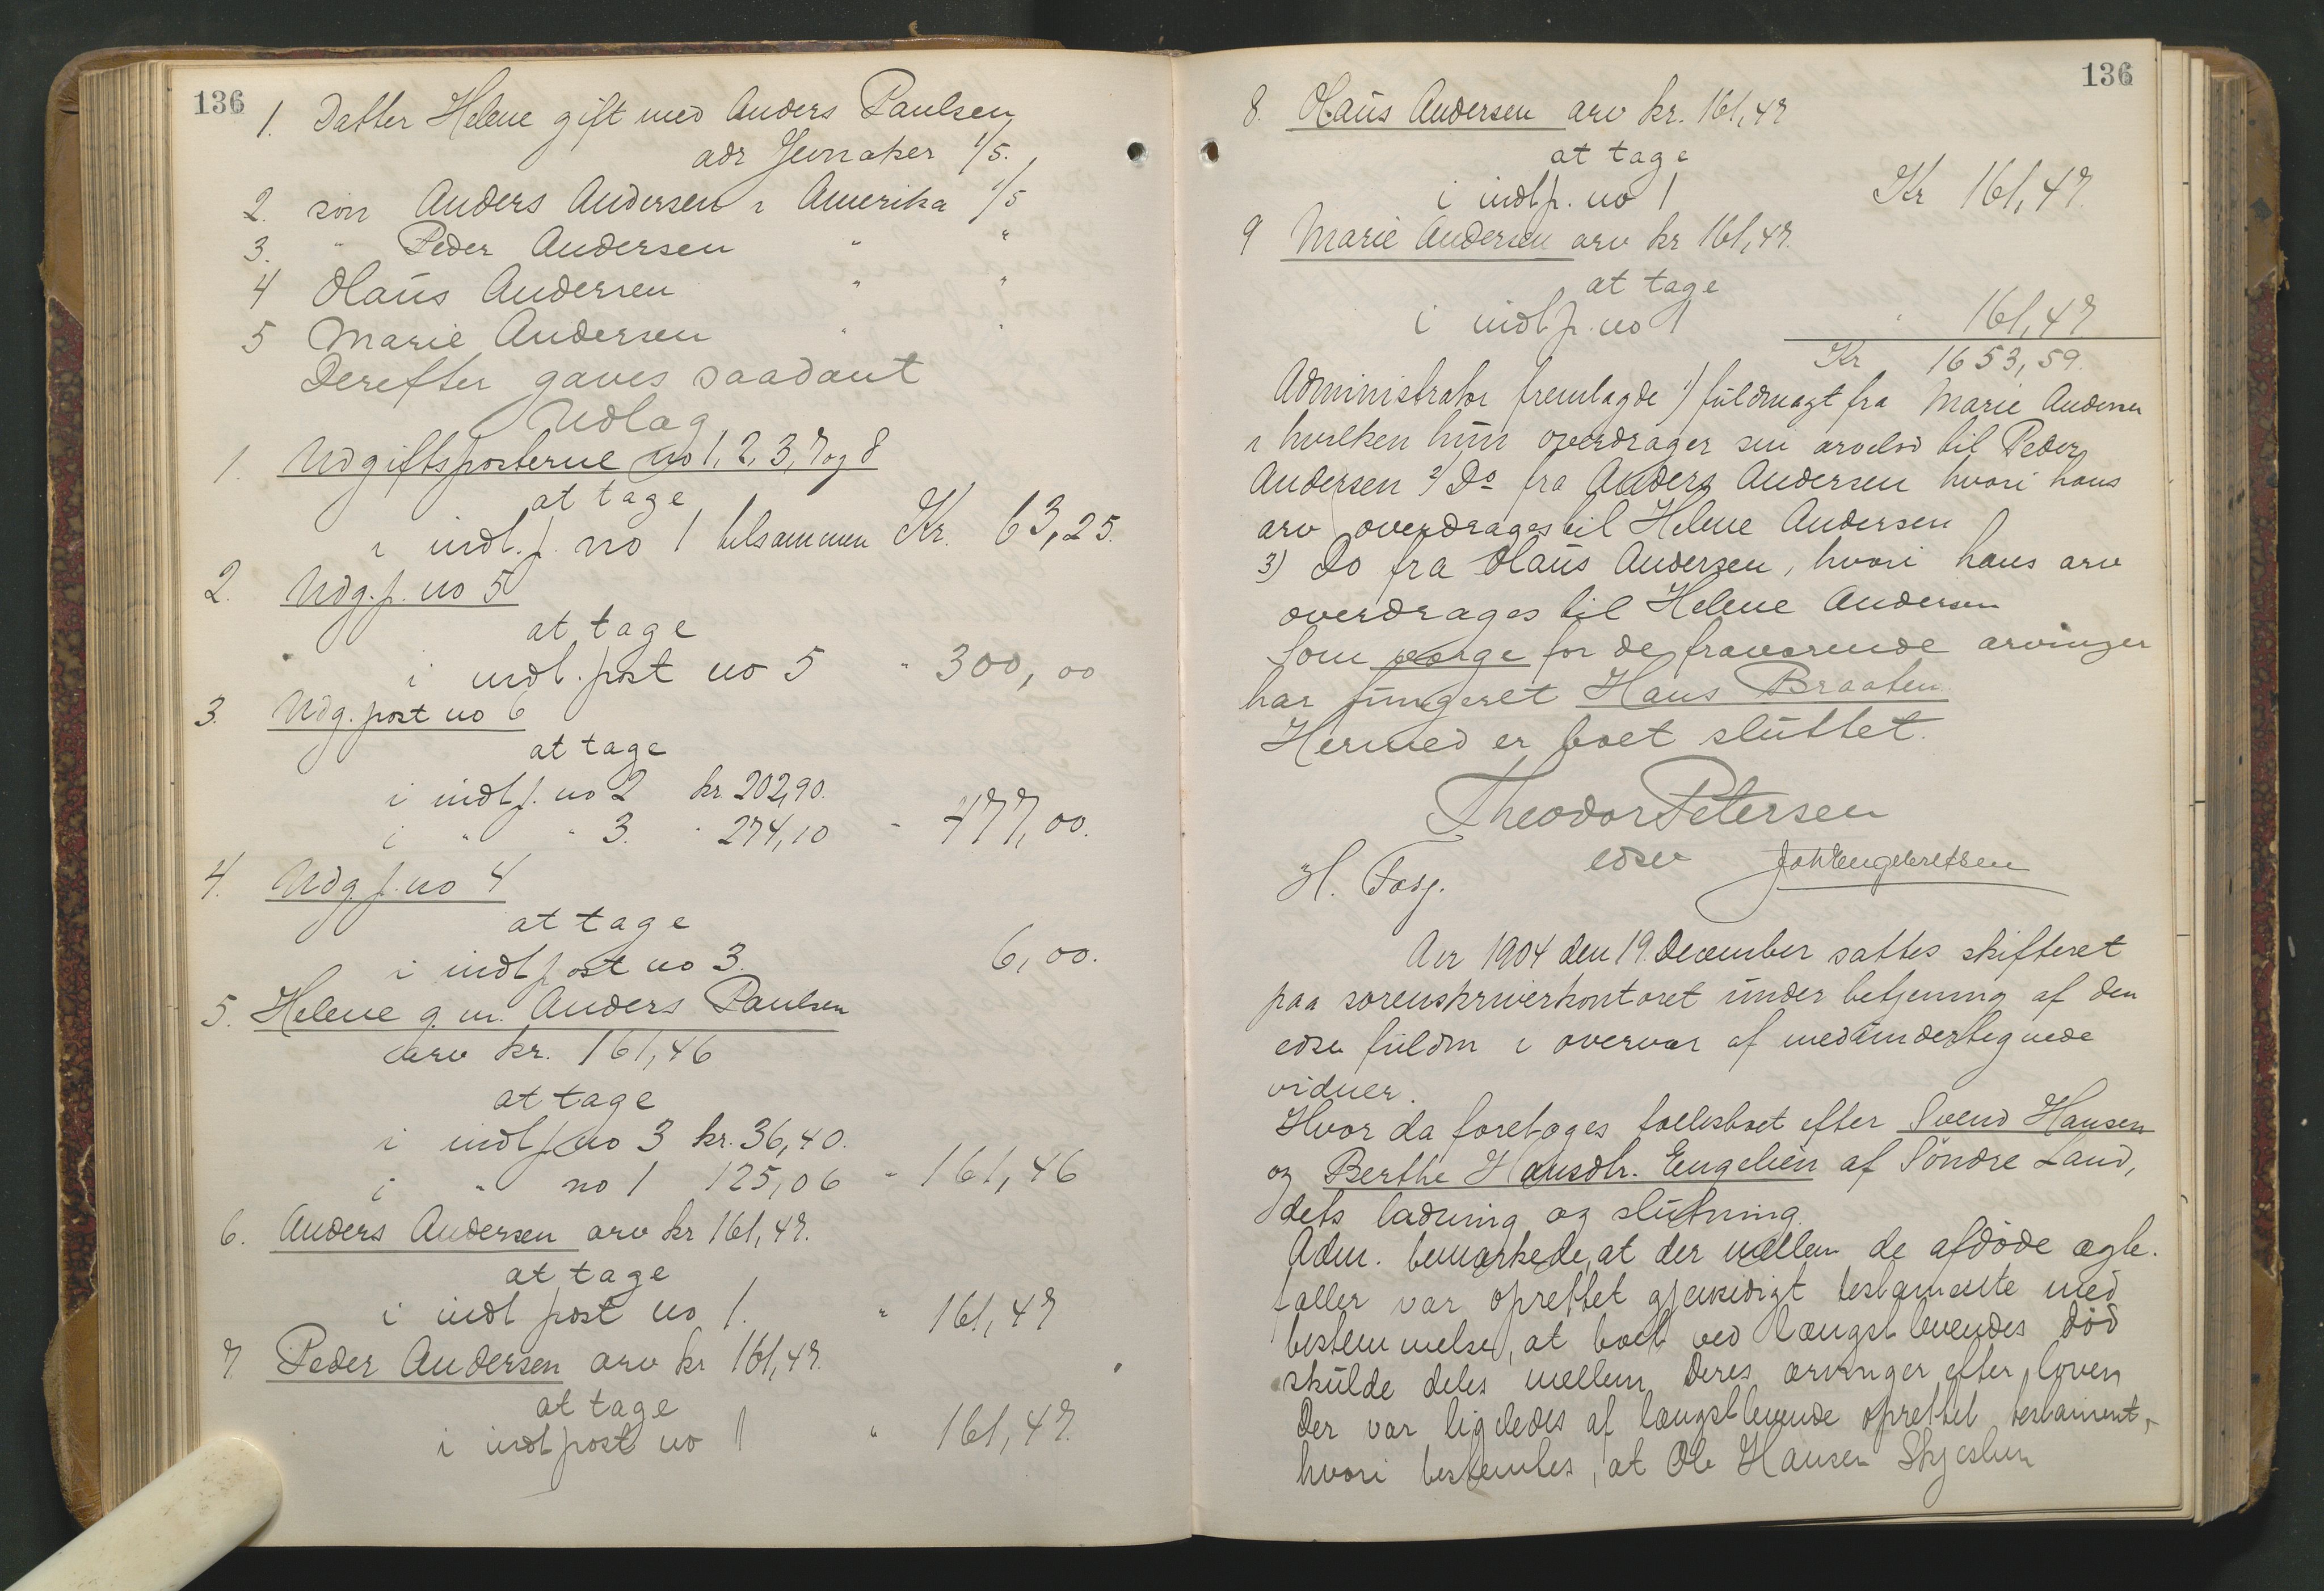 136
1. Datter Helene gift med Anders Paulsen
adr Jevnaker 1/5.
2. søn Anders Andersen i Amerika 1/5
3. " Peder Andersen " "
4 Olaus Andersen " "
5 Marie Andersen " "
Derefter gaves saadant
Udlag
1. Udgiftsposterne no 1, 2, 3, 7 og 8
at tage
i indt. p. no 1 tilsammen Kr. 63,25.
2. Udg. p. no 5
at tage
i indt. post no 5 " 300,00
3. Udg. post no 6
at tage
i indt p. no 2 kr. 202,90.
i " " 3. " 274,10 " 477,00.
4. Udg. p. no 4
at tage
i indt post no 3. 6,00.
5. Helene g. m. Anders Paulsen
arv kr. 161,46
at tage
i indt p no 3 kr. 36,40.
i " no 1 125,06 " 161,46
6. Anders Andersen arv kr 161,47.
at tage
i indt post no 1. " 161,47
7 Peder Andersen arv kr 161,47.
at tage
i indt post no 1 " 161,47.
136
8. Olaus Andersen arv kr. 161,47
at tage
i indt p. no 1 Kr 161,47.
9 Marie Andersen arv kr 161,47.
at tage
i indt p. no 1 " 161,47
Kr 1653,59.
Administrator fremlagde 1) fuldmagt fra Marie Andersen
i hvilken hun overdrager sin arvelod til Peder
Andersen 2) Do fra Anders Andersen hvori hans
arv overdrages til Helene Andersen
3) Do fra Olaus Andersen, hvori hans arv
overdrages til Helene Andersen
Som værge for de fraværende arvinger
har fungeret Hans Braaten.
Hermed er boet sluttet.
Theodor Petersen
edsv Joh Engebretsen
H. Fosj.
Aar 1904 den 19. December sattes skifteret
paa sorenskriverkontoret under betjening af den
edsv fuldm i overvær af medundertegnede
vidner.
Hvor da foretoges fællesboet efter Svend Hansen
og Berthe Hansdtr. Engelien af Søndre Land,
dets ladning og slutning.
Adm. bemærkede, at der mellem de afdøde ægte-
fæller var oprettet gjensidigt testamente med
bestemmelse, at boet ved længst levendes død
skulde deles mellem deres arvinger efter loven
Der var ligeledes af længstlevende oprettet testament,
hvori bestemtes, at Ole Hansen